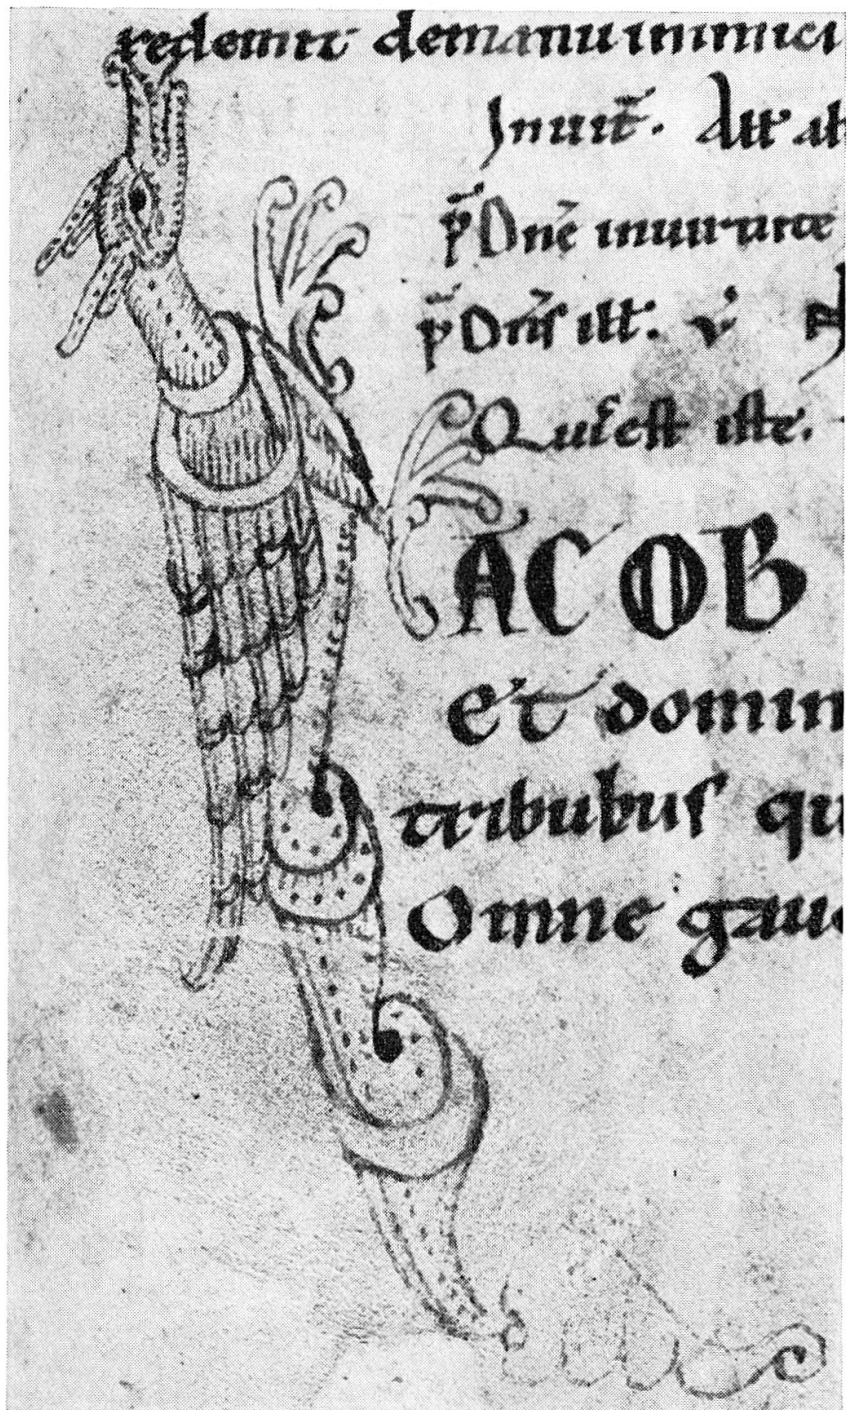 redemit demanu inimici
Inuit̄.
p̄ Dnē inuirtute
p̄ Dn̄s ill̄. v̄
Quis est iste.
ACOB
et domin
tribubus qu
Omne gau